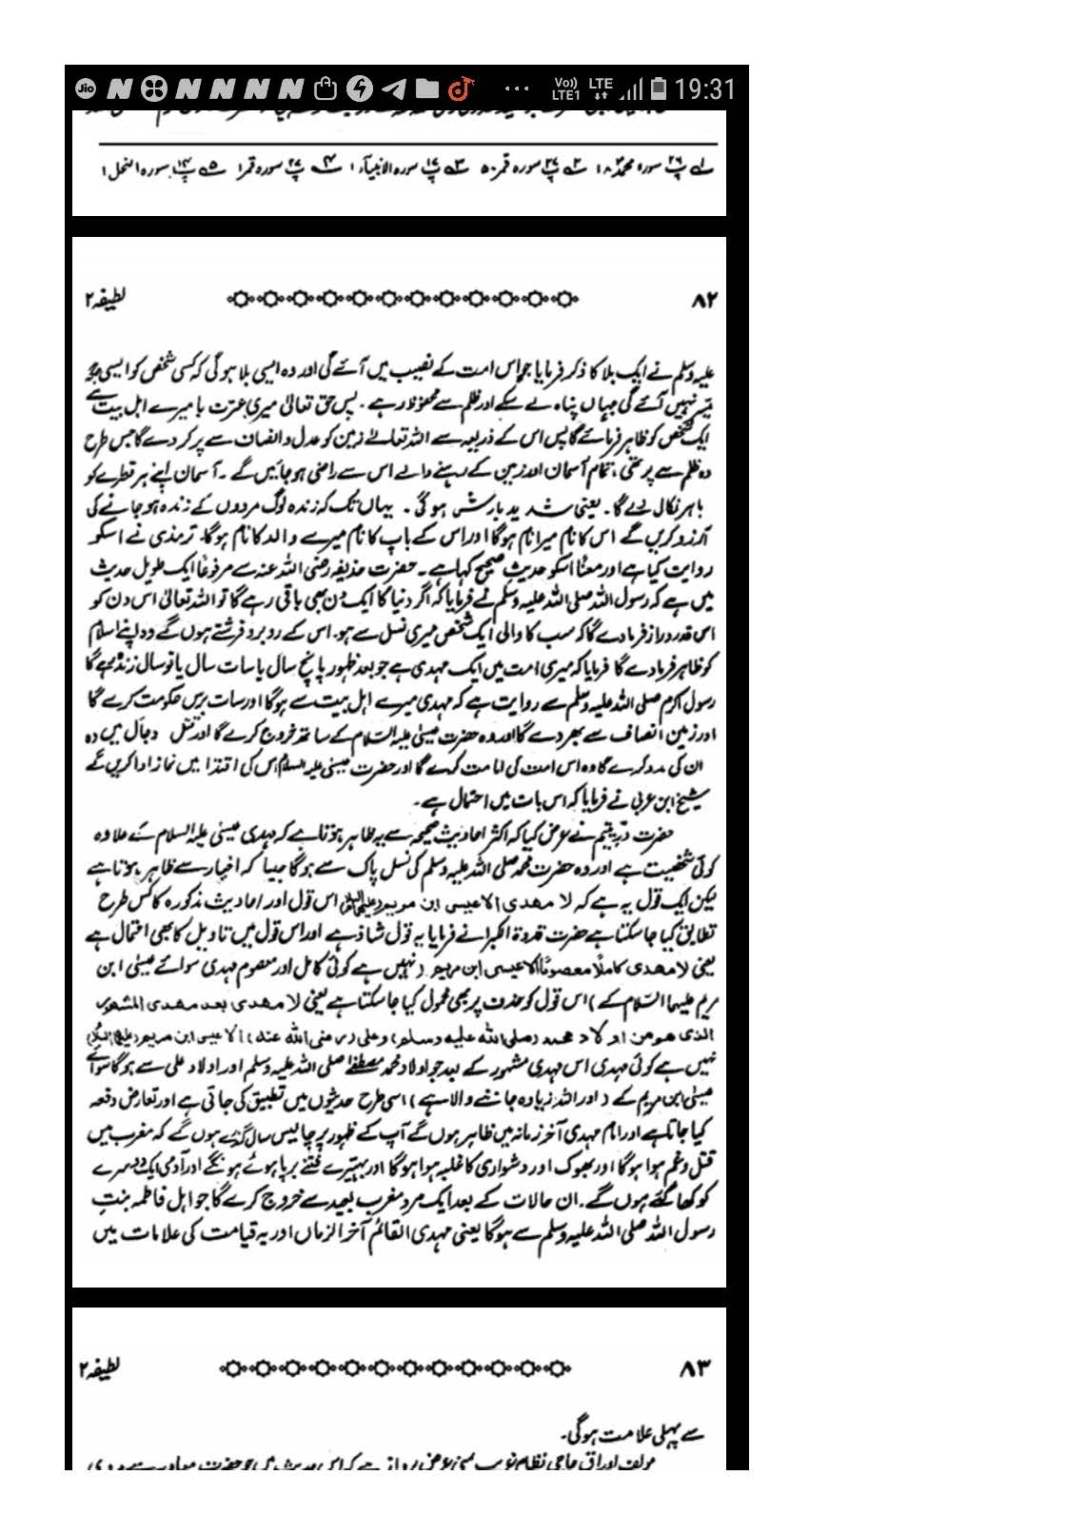 Vo)) LTE1 LTE 19:31
لہ پ۲۶ سورہ محمد ۱۸ ۲ہ پ۲۷ سورہ قمر ۵۰ ۳ہ پ۱۷ سورہ الانبیآء ۱ ۴ہ پ۲۷ سورہ قمر ۱ ۵ہ پ۱۴ سورہ النحل ۱
۸۲ لطیفہ ۲
علیہ وسلم نے ایک بلا کا ذکر فرمایا جو اس امت کے نصیب میں آئے گی اور وہ ایسی بلا ہوگی کہ کسی شخص کو ایسی جگہ
میسر نہیں آئے گی جہاں پناہ لے سکے اور ظلم سے محفوظ رہے ۔ پس حق تعالیٰ میری عترت یا میرے اہل بیت سے
ایک شخص کو ظاہر فرمائے گا پس اس کے ذریعہ سے اللہ تعالےٰ زمین کو عدل و انصاف سے پر کر دے گا جس طرح
وہ ظلم سے پر تھی ، تمام آسمان اور زمین کے رہنے والے اس سے راضی ہو جائیں گے ۔ آسمان اپنے ہر قطرے کو
باہر نکال دے گا ۔ یعنی شدید بارش ہو گی ۔ یہاں تک کہ زندہ لوگ مردوں کے زندہ ہو جانے کی
آرزو کریں گے اس کا نام میرا نام ہوگا اور اس کے باپ کا نام میرے والد کا نام ہوگا۔ ترمذی نے اسکو
روایت کیا ہے اور معناً اسکو حدیث صحیح کہا ہے ۔ حضرت حذیفہ رضی اللہ عنہ سے مرفوعاً ایک طویل حدیث
میں ہے کہ رسول اللہ صلی اللہ علیہ وسلم نے فرمایا کہ اگر دنیا کا ایک دن بھی باقی رہے گا تو اللہ تعالیٰ اس دن کو
اس قدر دراز فرما دے گا کہ سب کا والی ایک شخص میری نسل سے ہو۔ اس کے روبرو فرشتے ہوں گے وہ اپنے اسلام
کو ظاہر فرما دے گا فرمایا کہ میری امت میں ایک مہدی ہے جو بعد ظہور پانچ سال یا سات سال یا نو سال زندہ رہے گا
رسول اکرم صلی اللہ علیہ وسلم سے روایت ہے کہ مہدی میرے اہل بیت سے ہوگا اور سات برس حکومت کرے گا
اور زمین انصاف سے بھر دے گا اور وہ حضرت عیسیٰ علیہ السلام کے ساتھ خروج کرے گا اور قتل دجال میں وہ
ان کی مدد کرے گا وہ اس امت کی امامت کرے گا اور حضرت عیسیٰ علیہ السلام اس کی اقتدا میں نماز ادا کریں گے
شیخ ابن عربی نے فرمایا کہ اس بات میں احتمال ہے ۔
حضرت درّ یتیم نے عرض کیا کہ اکثر احادیث صحیحہ سے یہ ظاہر ہوتا ہے کہ مہدی عیسیٰ علیہ السلام کے علاوہ
کوئی شخصیت ہے اور وہ حضرت محمد صلی اللہ علیہ وسلم کی نسل پاک سے ہوگا جیسا کہ اخبار سے ظاہر ہوتا ہے
لیکن ایک قول یہ ہے کہ لا مھدی الا عیسی ابن مریم (علیہما السلام) اس قول اور احادیث مذکورہ کا کس طرح
تطابق کیا جا سکتا ہے حضرت قدوۃ الکبرا نے فرمایا یہ قول شاذ ہے اور اس قول میں تاویل کا بھی احتمال ہے
یعنی لا مھدی کاملاً معصوماً الا عیسی ابن مریم ( نہیں ہے کوئی کامل اور معصوم مہدی سوائے عیسیٰ ابن
مریم علیہما السلام کے ) اس قول کو حذف پر بھی محمول کیا جا سکتا ہے یعنی لا مھدی بعد مھدی المشہور
الذی ھو من اولاد محمد (صلی اللہ علیہ وسلم) وعلی (رضی اللہ عنہ) الا عیسی ابن مریم (علیہما السلام)
نہیں ہے کوئی مہدی اس مہدی مشہور کے بعد جو اولاد محمد مصطفےٰ صلی اللہ علیہ وسلم اور اولاد علی سے ہوگا سوائے
عیسیٰ ابن مریم کے ( اور اللہ زیادہ جاننے والا ہے ) اسی طرح حدیثوں میں تطبیق کی جاتی ہے اور تعارض دفعہ
کیا جاتا ہے اور امام مہدی آخر زمانہ میں ظاہر ہوں گے آپ کے ظہور پر چالیس سال گزرے ہوں گے کہ مغرب میں
قتل و غم ہوا ہوگا اور بھوک اور دشواری کا غلبہ ہوا ہوگا اور بہتیرے فتنے برپا ہوئے ہونگے اور آدمی ایک دوسرے
کو کھا گئے ہوں گے ۔ ان حالات کے بعد ایک مرد مغرب بعید سے خروج کرے گا جو اہل فاطمہ بنتِ
رسول اللہ صلی اللہ علیہ وسلم سے ہوگا یعنی مہدی القائم آخر الزماں اور یہ قیامت کی علامات میں
۸۳ لطیفہ ۲
سے پہلی علامت ہوگی۔
مولف اوراق حاجی نظام غریب یمنی عرض پرداز ہے کہ اس حدیث میں جو حضرت